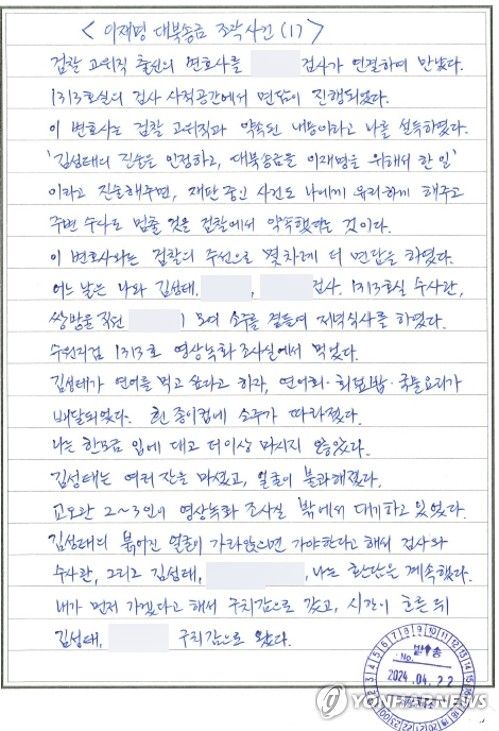 < 이재명 대북송금 조작사건 (1) >
검찰 고위직 출신의 변호사를 검사가 연결하여 만났다.
1313호실의 검사 사적공간에서 면담이 진행되었다.
이 변호사는 검찰 고위직과 약속된 내용이라고 나를 설득하였다.
'김성태의 진술을 인정하고, 대북송금을 이재명을 위해서 한 일'
이라고 진술해주면, 재판 중인 사건도 나에게 유리하게 해주고
주변 수사도 멈출 것을 검찰에서 약속했다는 것이다.
이 변호사와는 검찰의 주선으로 몇차례 더 면담을 하였다.
어느 날은 나와 김성태, , 검사, 1313호실 수사관,
쌍방울 직원 이 모여 소주를 곁들여 저녁식사를 하였다.
수원지검 1313호 영상녹화 조사실에서 먹었다.
김성태가 연어를 먹고 싶다고 하자, 연어회·회덮밥·국물요리가
배달되었다. 흰 종이컵에 소주가 따라졌다.
나는 한모금 입에 대고 더이상 마시지 않았다.
김성태는 여러 잔을 마셨고, 얼굴이 불콰해졌다.
교도관 2~3인이 영상녹화 조사실 밖에서 대기하고 있었다.
김성태의 붉어진 얼굴이 가라앉으면 가야한다고 해서 검사와
수사관, 그리고 김성태, , 나는 환담을 계속했다.
내가 먼저 가겠다고 해서 구치감으로 갔고, 시간이 흐른 뒤
김성태, 구치감으로 왔다.
발송
No.
2024.04.22
YONHAPNEWS